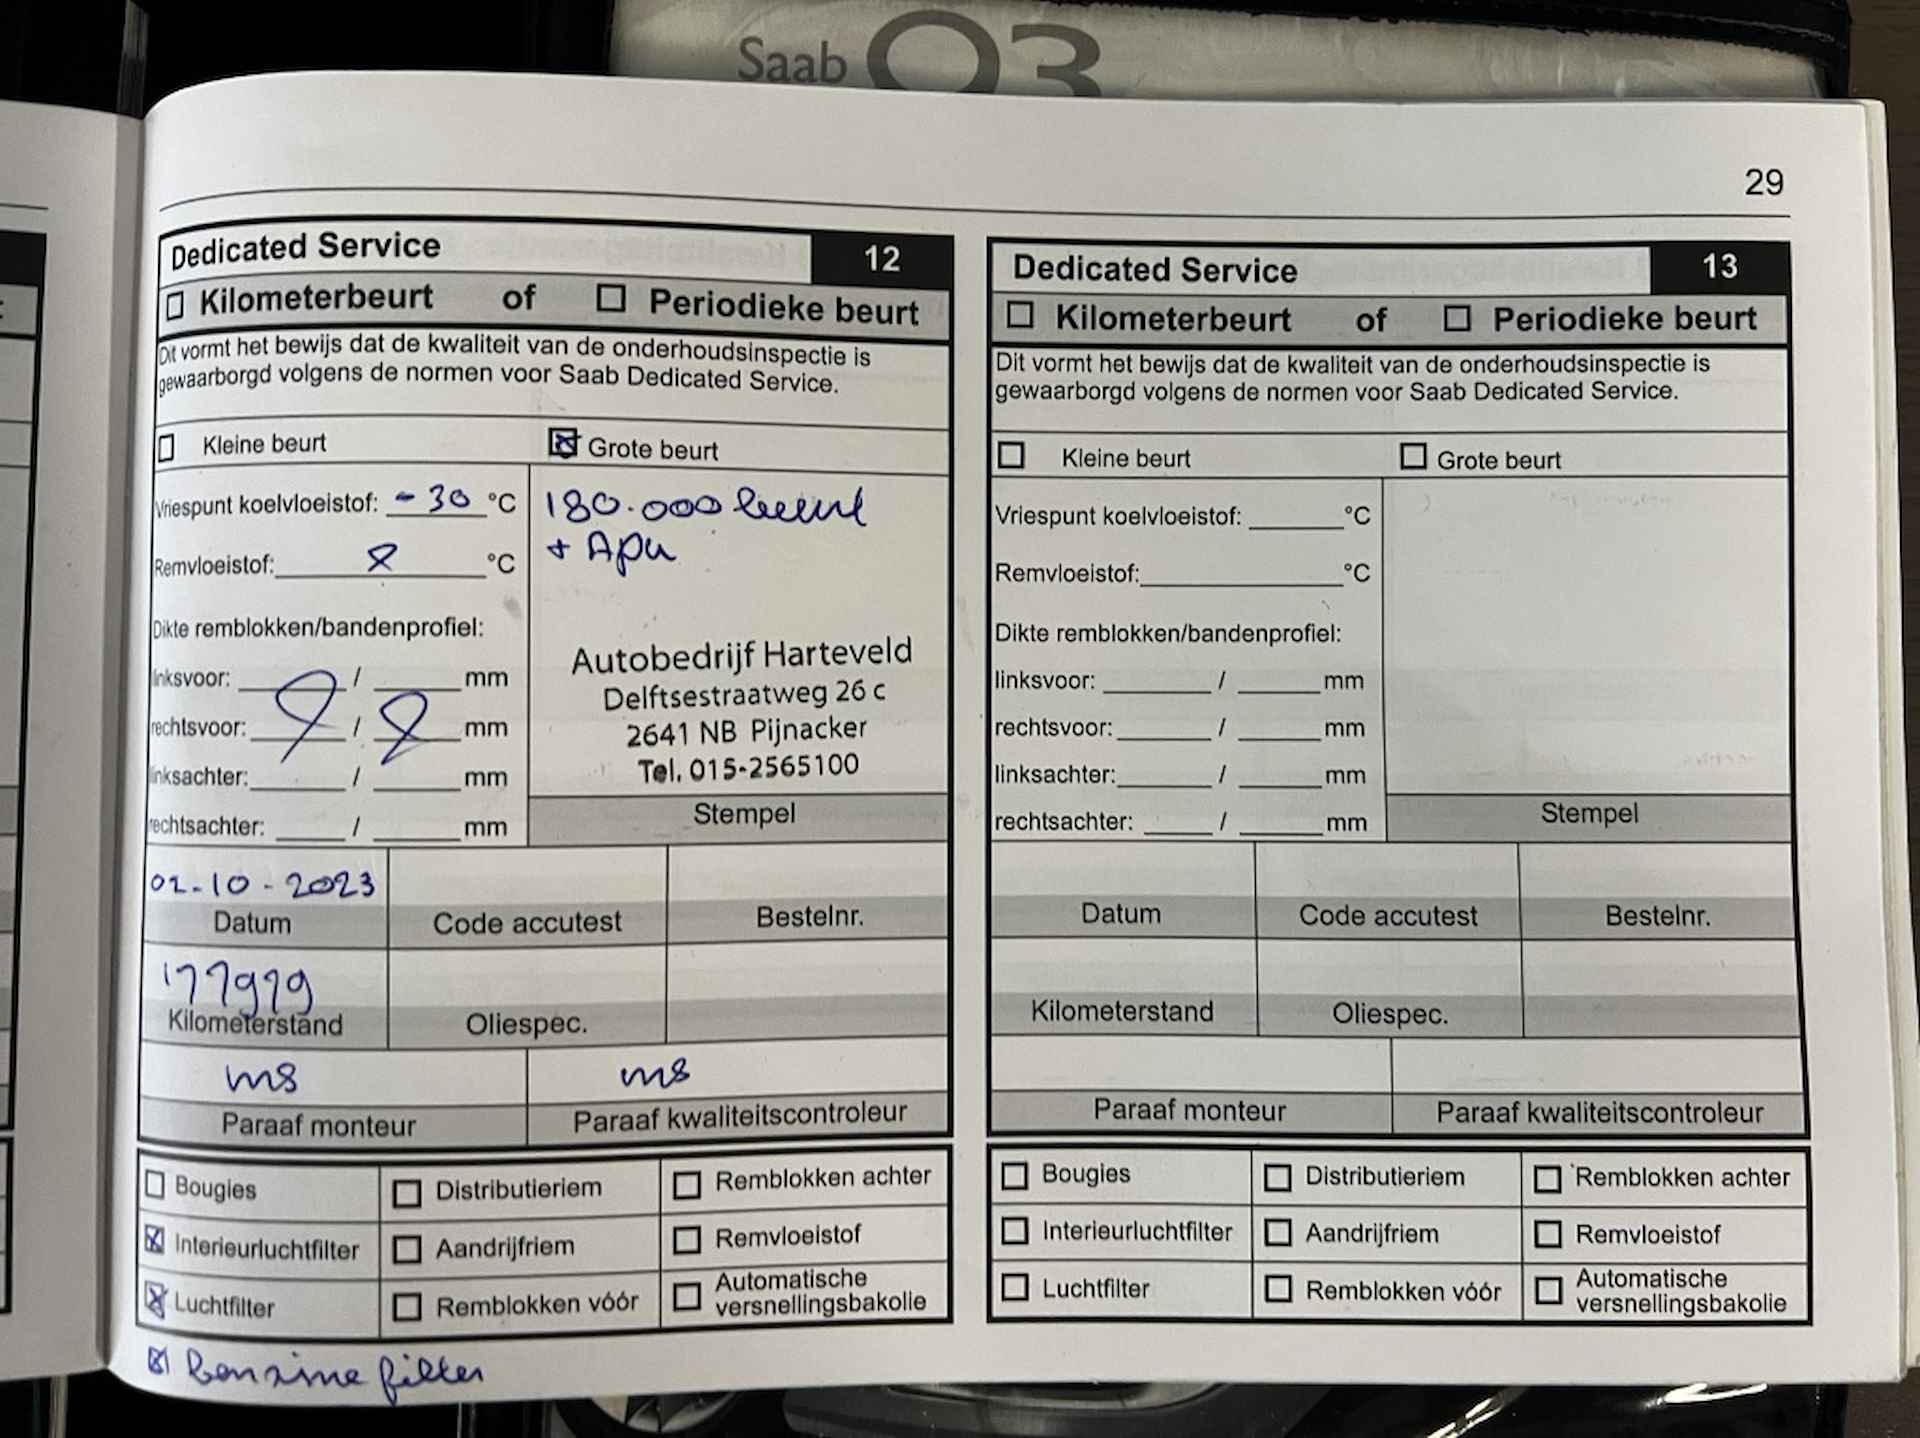 Saab 93
29
Dedicated Service 12
Kilometerbeurt of Periodieke beurt
Dit vormt het bewijs dat de kwaliteit van de onderhoudsinspectie is
gewaarborgd volgens de normen voor Saab Dedicated Service.
Kleine beurt Grote beurt
Vriespunt koelvloeistof: -30 °C
180.000 beurt
+ Apk
Remvloeistof: 8 °C
Dikte remblokken/bandenprofiel:
linksvoor: / mm
rechtsvoor: / mm
linksachter: / mm
rechtsachter: / mm
Autobedrijf Harteveld
Delftsestraatweg 26 c
2641 NB Pijnacker
Tel. 015-2565100
Stempel
02-10-2023
Datum Code accutest Bestelnr.
177979
Kilometerstand Oliespec.
ms ms
Paraaf monteur Paraaf kwaliteitscontroleur
Bougies Distributieriem Remblokken achter
Interieurluchtfilter Aandrijfriem Remvloeistof
Luchtfilter Remblokken vóór Automatische versnellingsbakolie
Benzine filter
Dedicated Service 13
Kilometerbeurt of Periodieke beurt
Dit vormt het bewijs dat de kwaliteit van de onderhoudsinspectie is
gewaarborgd volgens de normen voor Saab Dedicated Service.
Kleine beurt Grote beurt
Vriespunt koelvloeistof: °C
Remvloeistof: °C
Dikte remblokken/bandenprofiel:
linksvoor: / mm
rechtsvoor: / mm
linksachter: / mm
rechtsachter: / mm
Stempel
Datum Code accutest Bestelnr.
Kilometerstand Oliespec.
Paraaf monteur Paraaf kwaliteitscontroleur
Bougies Distributieriem Remblokken achter
Interieurluchtfilter Aandrijfriem Remvloeistof
Luchtfilter Remblokken vóór Automatische versnellingsbakolie